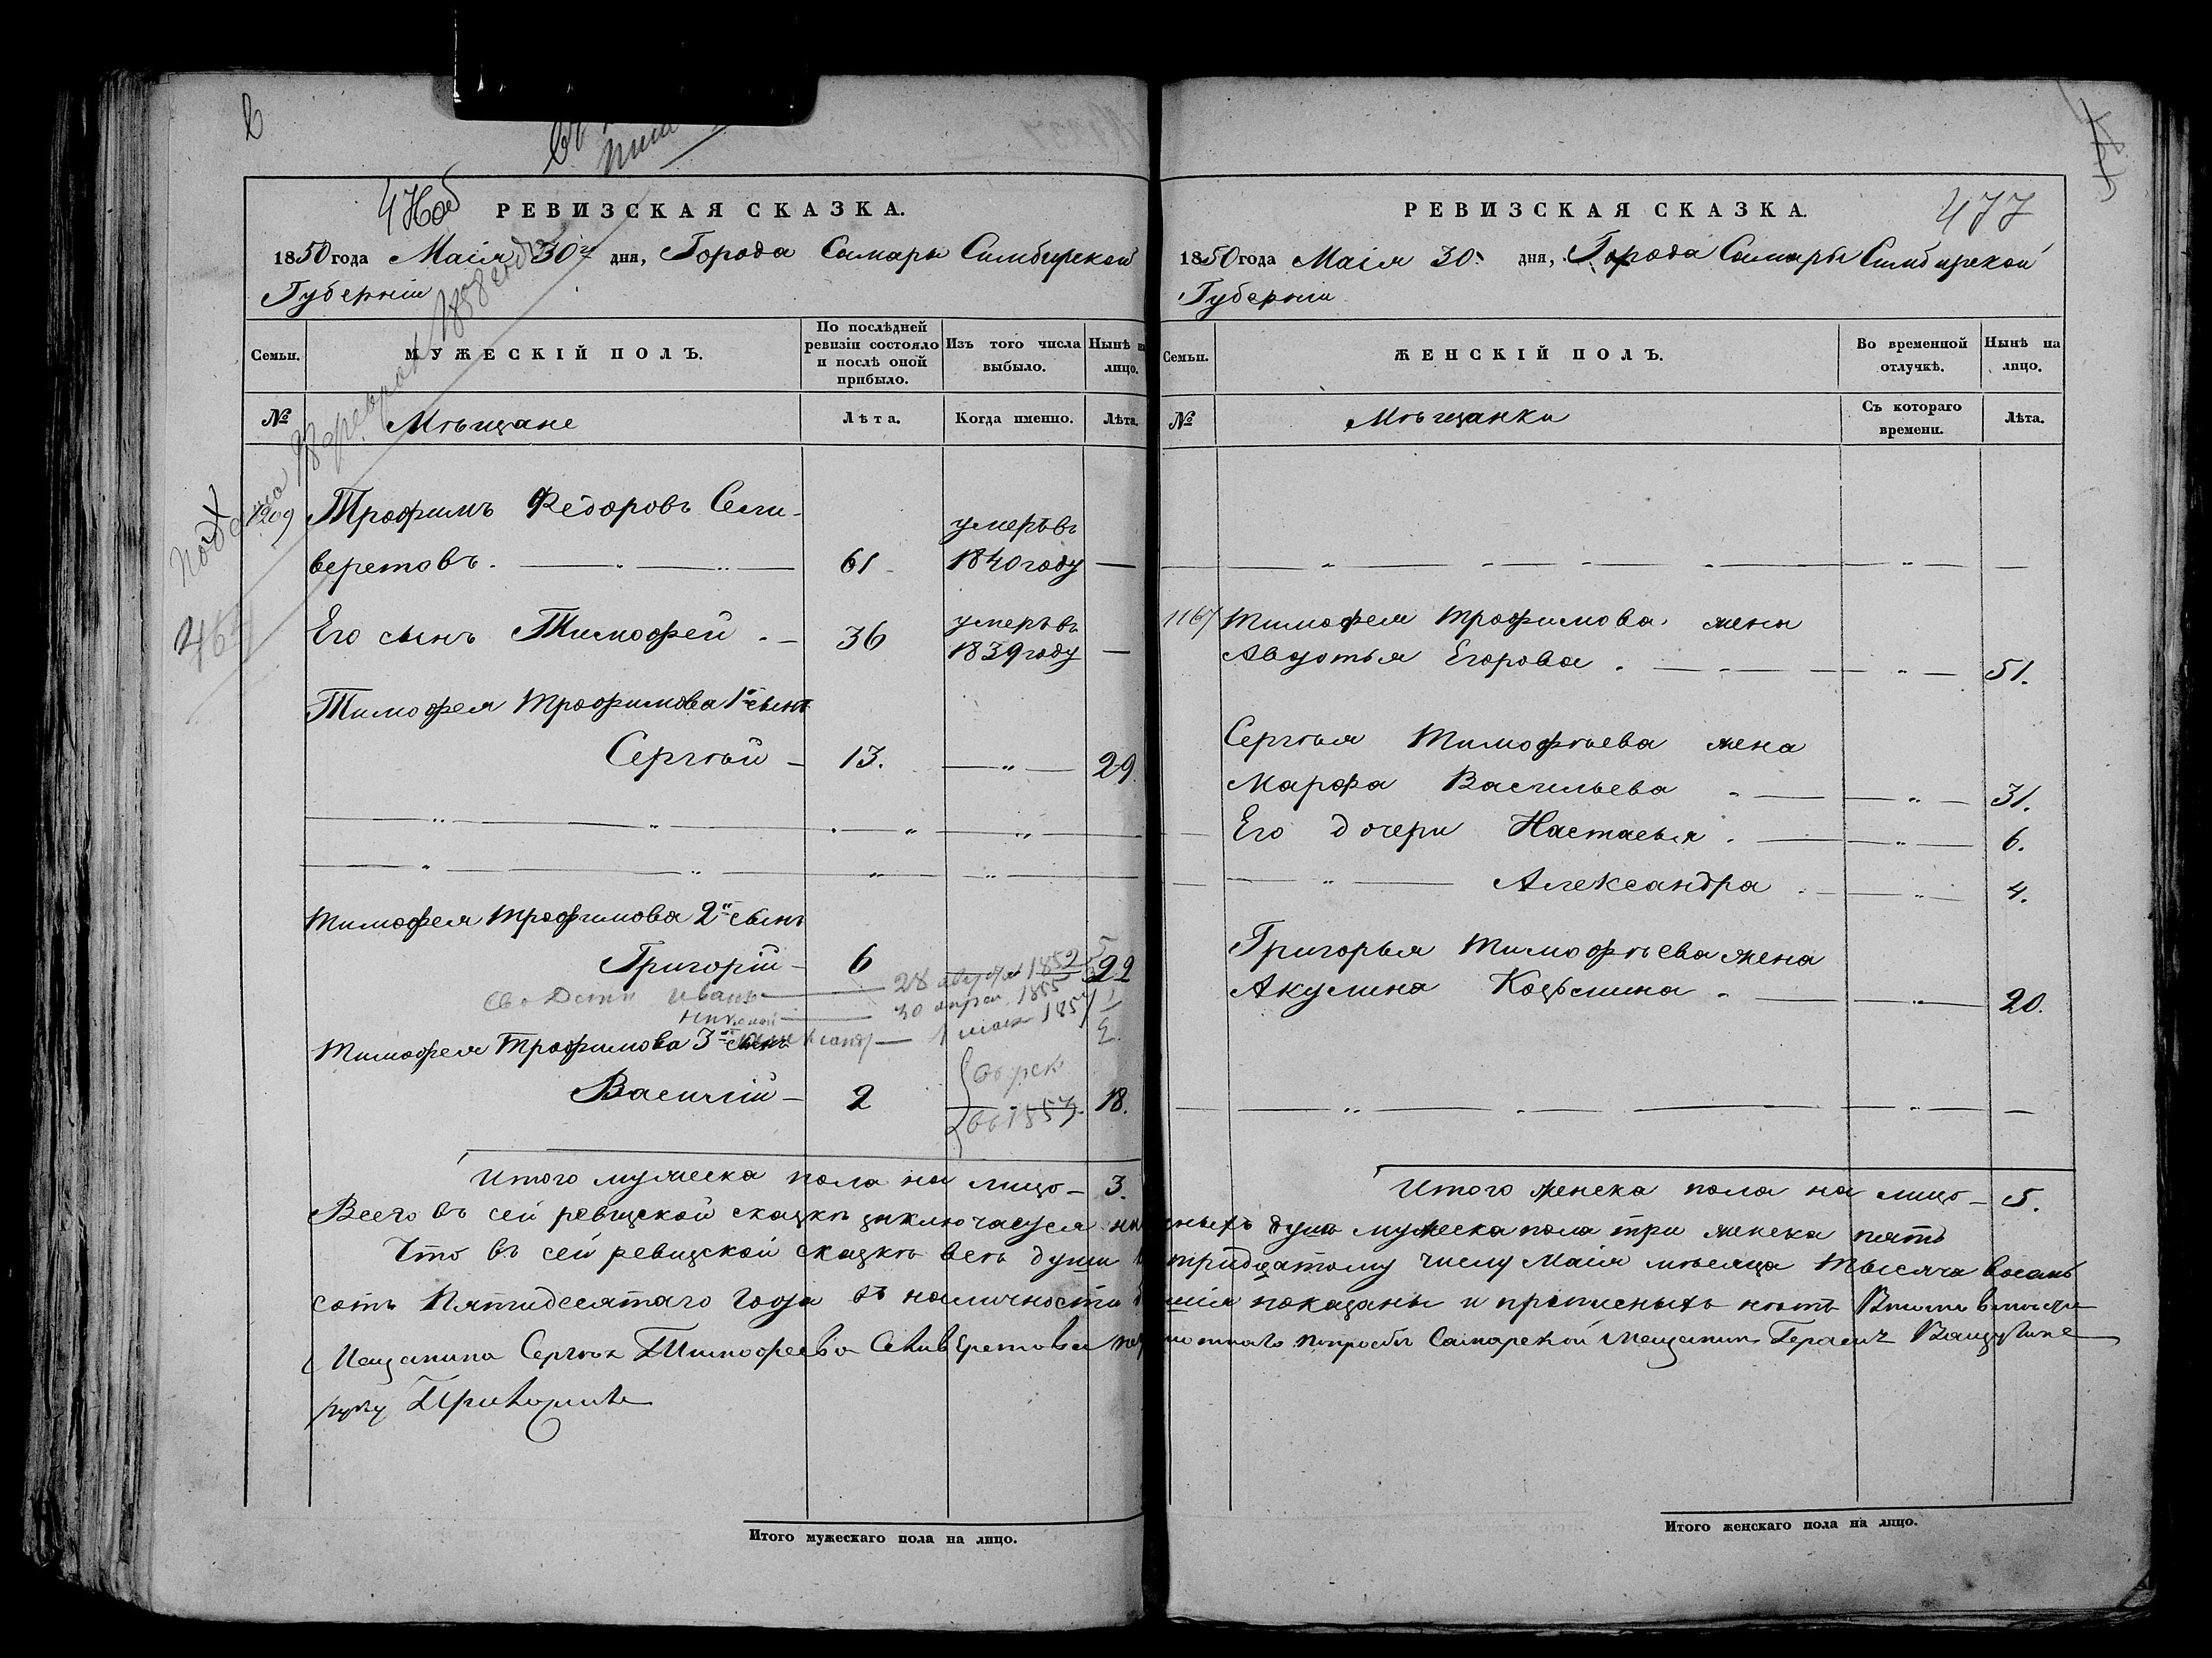 РЕВИЗСКАЯ СКАЗКА.
1850 года Маія 30го дня, Города Самары Симбирской
Губерніи
Семьи.
МУЖЕСКІЙ ПОЛЪ.
По послѣдней ревизіи состояло и послѣ оной прибыло.
Изъ того числа выбыло.
Нынѣ на лицо.
№
Мѣщане
Лѣта.
Когда именно.
Лѣта.
Подана 9 февраля 1858 года
1209 Трофимъ Федоровъ Сели-
верстовъ. 61 умеръ въ 1840 году —
Его сынъ Тимофей 36 умеръ въ 1839 году —
Тимофея Трофимова 1й сынъ
Сергѣй 13. — 29.
Тимофея Трофимова 2й сынъ
Григорій 6 22
Его дѣти Иванъ 28 августа 1852 5
Николай 30 апрѣл 1855
1 мая 1857
Тимофея Трофимова 3й сынъ
Василій 2 18.
въ рек
въ 1853
Итого мужеска пола на лицо 3.
РЕВИЗСКАЯ СКАЗКА.
477
1850 года Маія 30. дня, Города Самары Симбирской
Губерніи
Семьи.
ЖЕНСКІЙ ПОЛЪ.
Во временной отлучкѣ.
Нынѣ на лицо.
№
Мѣщанки
Съ котораго времени.
Лѣта.
1167 Тимофея Трофимова жена
Авдотья Егорова 51.
Сергѣя Тимофѣева жена
Марфа Васильева 31.
Его дочери Настасья 6.
Александра 4.
Григорья Тимофѣева жена
Акулина Козьмина 20.
Итого женска пола на лицо 5.
Всего въ сей ревизской сказкѣ заключается наличныхъ душъ мужеска пола три женска пять
Что въ сей ревизской сказкѣ всѣ души къ тридцатому числу Маія мѣсяца тысяча восемь
сотъ Пятидесятаго Года въ наличности показаны и прописныхъ нѣтъ
Мещанина Сергѣя Тимофеева Селиверстова по просьбѣ Самарской Мещанинъ Герасимъ
руку Приложилъ
Итого мужескаго пола на лицо.
Итого женскаго пола на лицо.